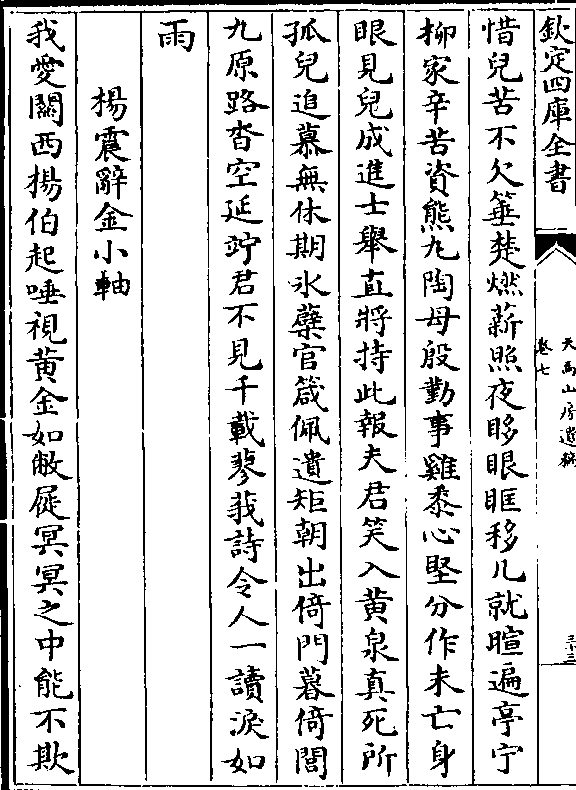 欽定四庫全書
天馬山房遺稿
卷七
三十三
惜兒苦不欠箠楚燃薪照夜眵眼眶移几就暄遍亭宁
柳家辛苦資熊丸陶母殷勤事雞黍心堅分作未亡身
眼見兒成進士舉直將持此報夫君笑入黄泉真死所
孤兒追慕無休期氷蘖官箴佩遺矩朝出倚門暮倚閭
九原路杳空延竚君不見千載蓼莪詩令人一讀淚如
雨
楊震辭金小軸
我愛關西楊伯起唾視黄金如敝屣冥冥之中能不欺